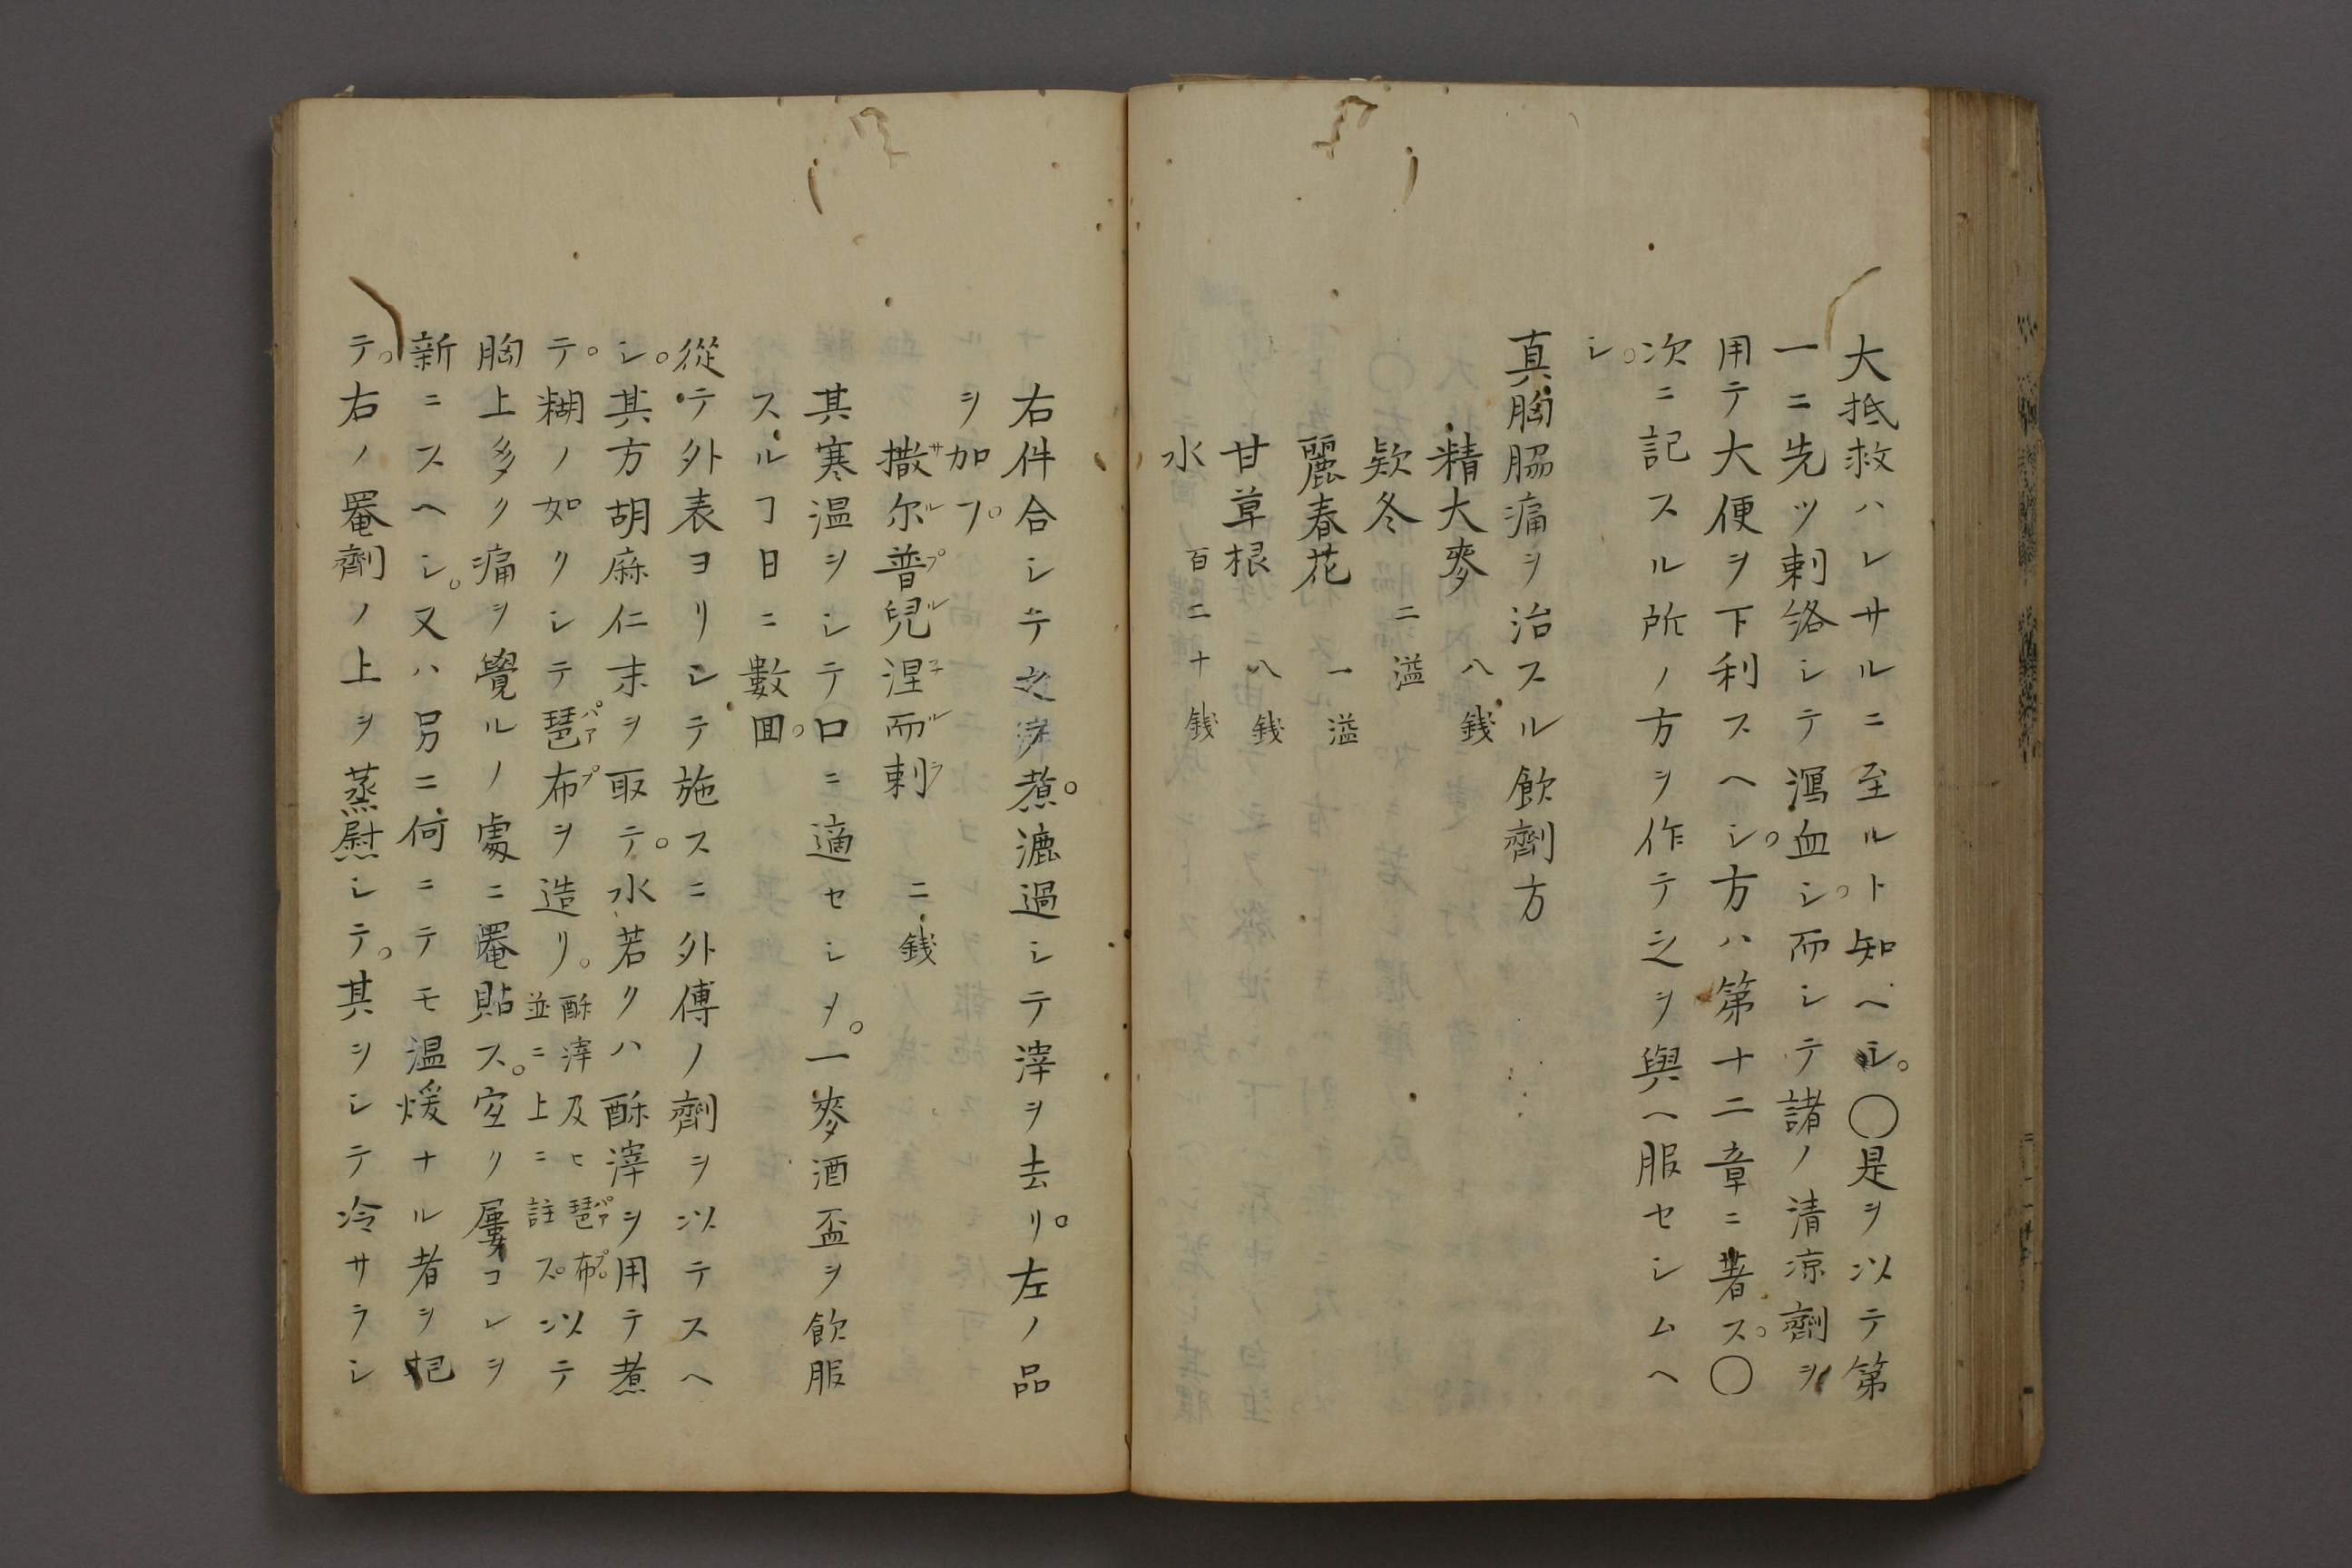 大抵救ハレサルニ至ルト知ヘシ。〇是ヲ以テ第
一ニ先ツ刺絡シテ瀉血シ。而シテ諸ノ清凉劑ヲ
用テ大便ヲ下利スヘシ。方ハ第十二章ニ著ス。〇
次ニ記スル所ノ方ヲ作テ之ヲ與ヘ服セシムヘ
シ。
真胸脇痛ヲ治スル飲劑方
精大麥 八銭
欵冬 二溢
麗春花 一溢
甘草根 八銭
水 百二十銭
右件合シテ之ヲ煮。漉過シテ滓ヲ去リ。左ノ品
ヲ加フ。
撒尔普兒涅而剌 二銭
サルプルネルラ
其寒温ヲシテ口ニ適セシメ。一麥酒盃ヲ飲服
スルヿ日ニ數囬。
從テ外表ヨリシテ施スニ外傅ノ劑ヲ以テスヘ
シ。其方胡麻仁末ヲ取テ。水若クハ酥滓ヲ用テ煮
テ。糊ノ如クシテ琶布ヲ造リ。酥滓及ヒ琶布。並ニ上ニ註ス。以テ
パアプ
パアプ
胸上多ク痛ヲ覺ルノ處ニ罨貼ス。宜ク屢コレヲ
新ニスヘシ。又ハ另ニ何ニテモ温煖ナル者ヲ把
テ。右ノ罨劑ノ上ヲ蒸慰シテ。其ヲシテ冷サラシ